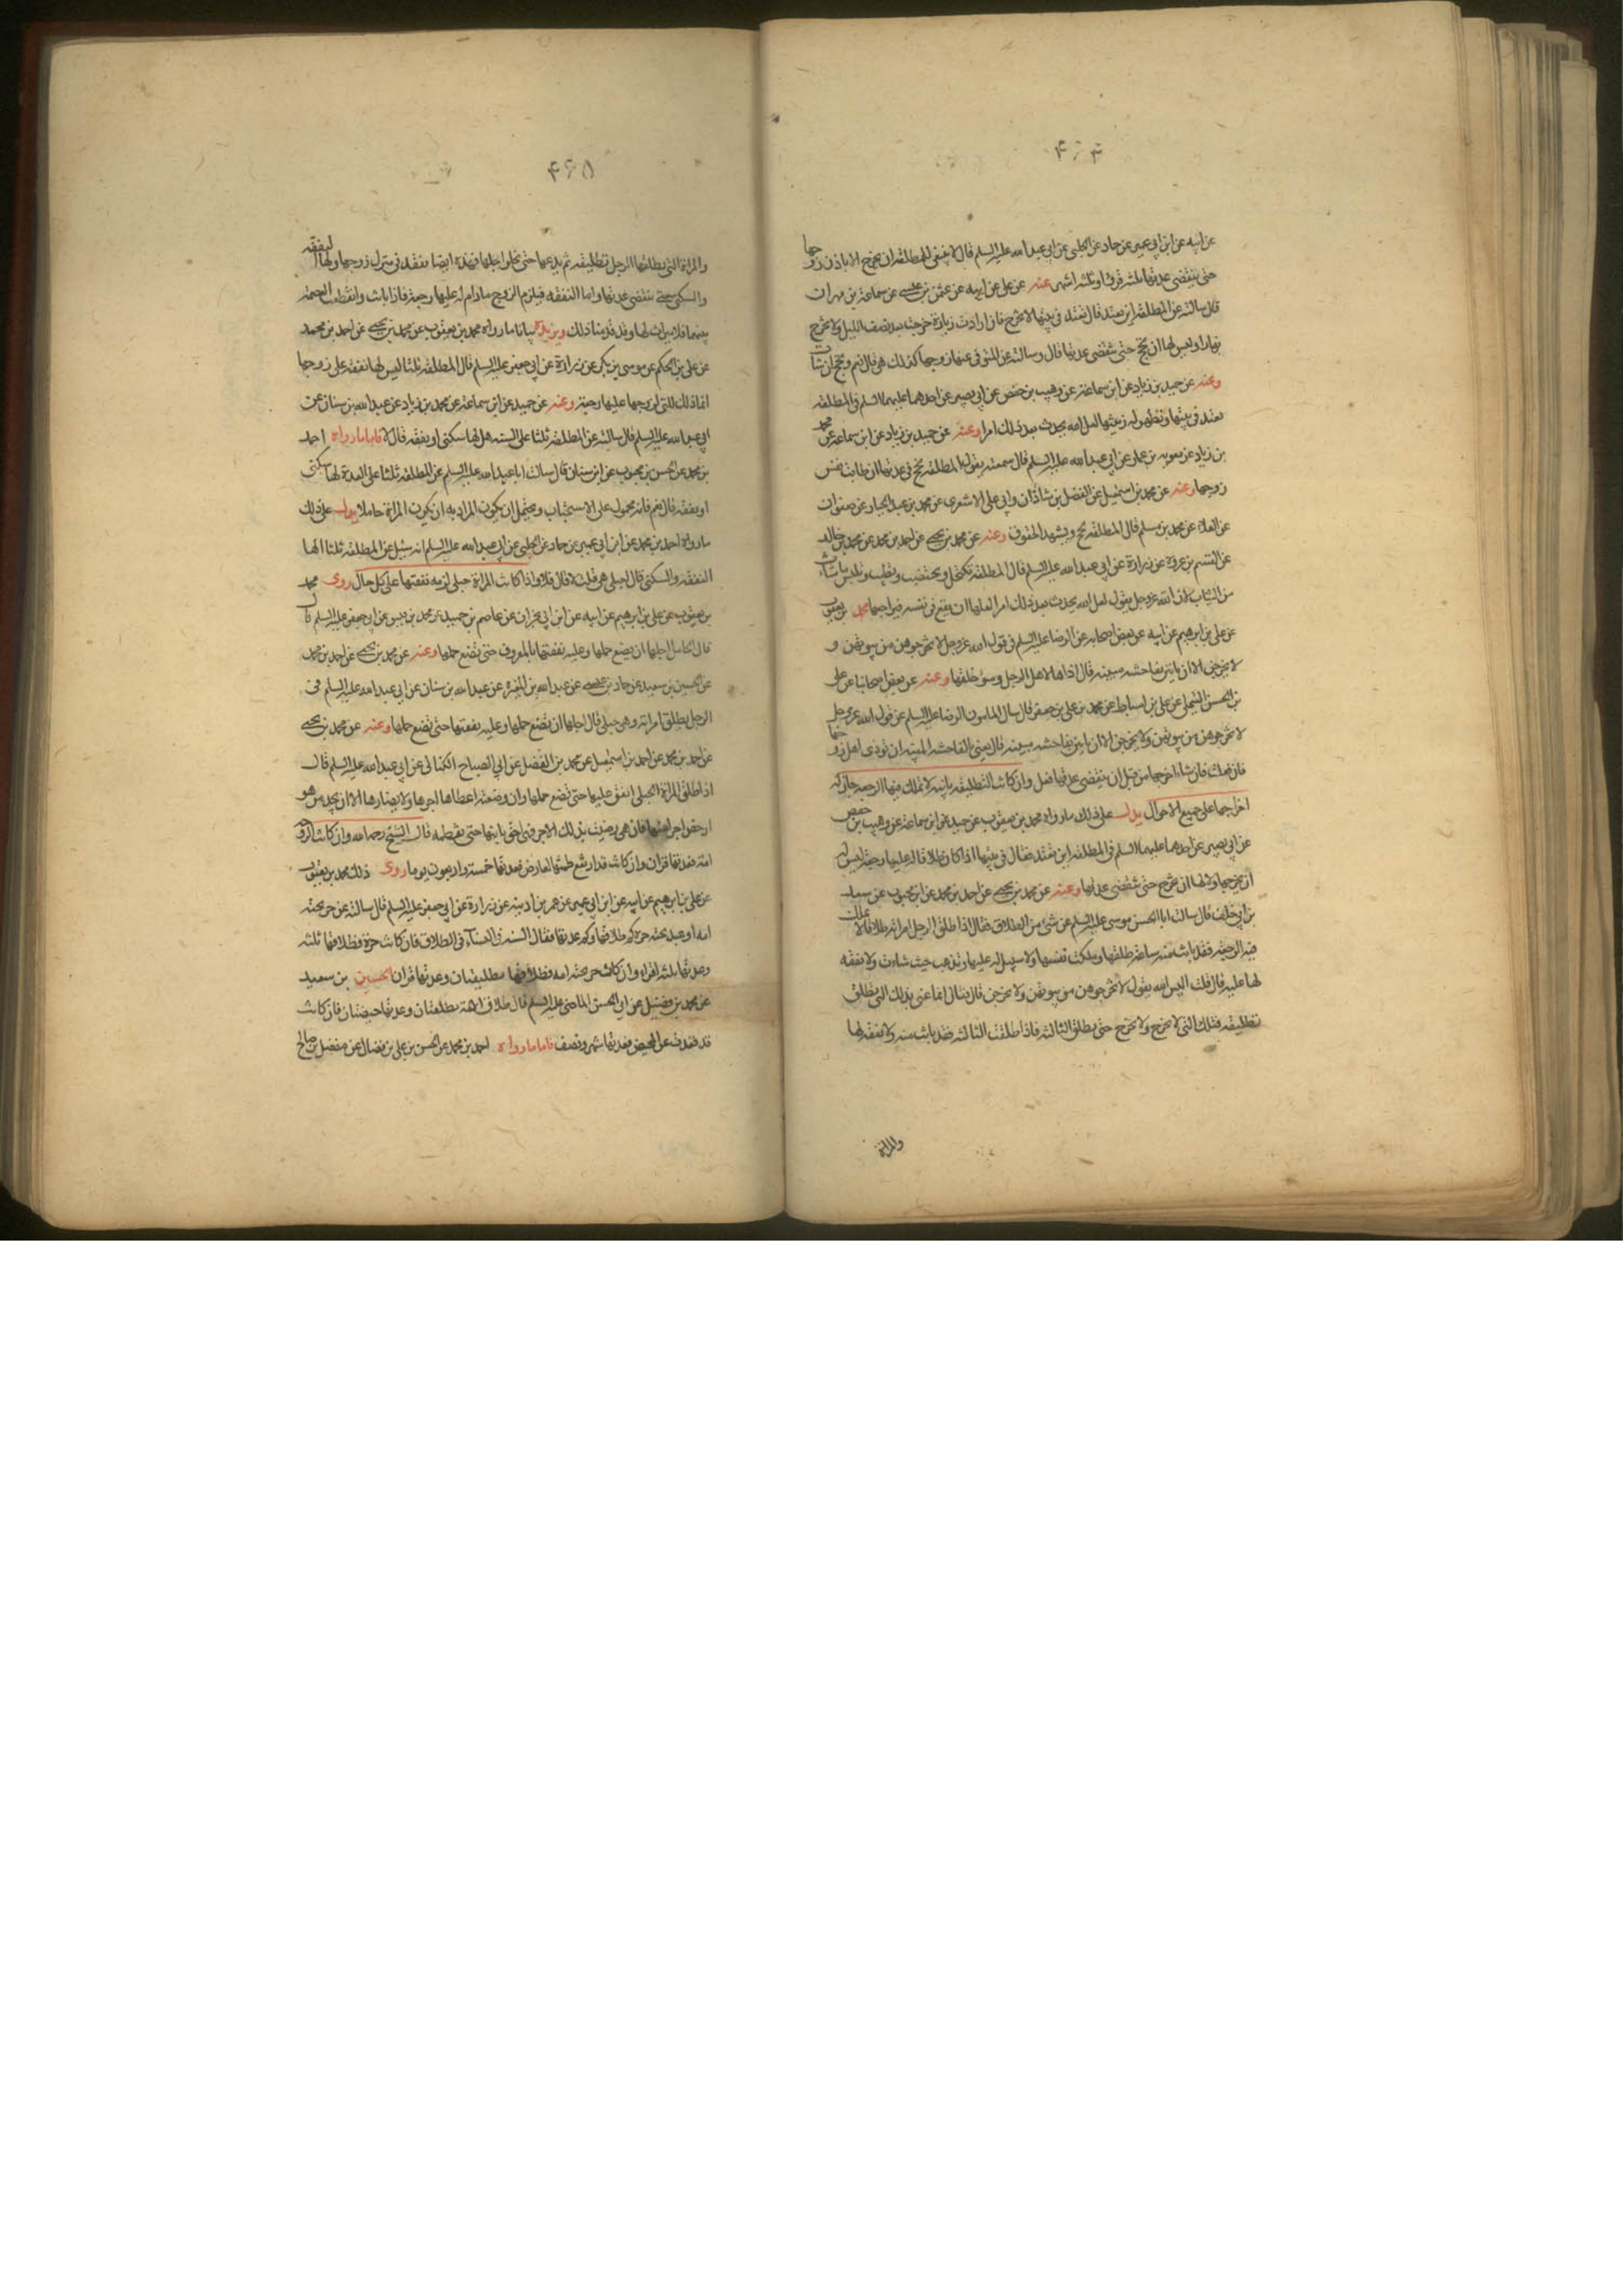 ۴۶۴
عن ابيه عن ابن ابي عمير عن حماد عن الحلبي عن ابي عبد الله عليه السلم قال لا ينبغي للمطلقة ان تخرج الا باذن زوجها
حتى تنقضي عدتها ثلثة قروء او ثلثة اشهر عنه عن علي عن ابيه عن عثمن بن عيسى عن سماعة بن مهران
قال سالته عن المطلقة اين تعتد قال تعتد في بيتها لا تخرج فان ارادت زيارة خرجت بعد نصف الليل ولا تخرج
نهارا وليس لها ان تحج حتى تنقضي عدتها قال وسالته عن المتوفى عنها زوجها كذلك هي قال نعم وتحج ان شات
وعنه عن حميد بن زياد عن ابن سماعة عن وهيب بن حفص عن ابي بصير عن احدهما عليهما السلم في المطلقة
تعتد في بيتها وتظهر له زينتها لعل الله يحدث بعد ذلك امرا وعنه عن حميد بن زياد عن ابن سماعة عن محمد
بن زياد عن معوية بن عمار عن ابي عبد الله عليه السلم قال سمعته يقول المطلقة تحج في عدتها ان طابت نفس
زوجها وعنه عن محمد بن اسمعيل عن الفضل بن شاذان وابي علي الاشعري عن محمد بن عبد الجبار عن صفوان
عن العلاء عن محمد بن مسلم قال المطلقة تحج وتشهد الحقوق وعنه عن محمد بن يحيى عن احمد بن محمد عن محمد بن خالد
عن القسم بن عروة عن زرارة عن ابي عبد الله عليه السلم قال المطلقة تكتحل وتختضب وتطيب وتلبس ما شاءت
من الثياب لان الله عز وجل يقول لعل الله يحدث بعد ذلك امرا لعلها ان تقع في نفسه فيراجعها محمد بن يعقوب
عن علي بن ابرهيم عن ابيه عن بعض اصحابه عن الرضا عليه السلم في قول الله عز وجل لا تخرجوهن من بيوتهن و
لا يخرجن الا ان ياتين بفاحشة مبينة قال اذاها لاهل الرجل وسوء خلقها وعنه عن بعض اصحابنا عن علي
بن الحسن التيملي عن علي بن اسباط عن محمد بن علي بن جعفر قال سال المامون الرضا عليه السلم عن قول الله عز وجل
لا تخرجوهن من بيوتهن ولا يخرجن الا ان ياتين بفاحشة مبينة قال يعني بالفاحشة المبينة ان توذي اهل زوجها
فان فعلت فان شاء ان يخرجها من قبل ان تنقضي عدتها فعل وان كانت التطليقة باينة لا تملك فيها الرجعة جاز له
اخراجها على جميع الاحوال يدل على ذلك ما رواه محمد بن يعقوب عن حميد عن ابن سماعة عن وهيب بن حفص
عن ابي بصير عن احدهما عليهما السلم في المطلقة اين تعتد فقال في بيتها اذا كان طلاقا له عليها رجعة ليس له
ان يخرجها ولا لها ان تخرج حتى تنقضي عدتها وعنه عن محمد بن يحيى عن احمد بن محمد عن ابن محبوب عن سعد
بن ابي خلف قال سالت ابا الحسن موسى عليه السلم عن شئ من الطلاق فقال اذا طلق الرجل امراته طلاقا لا يملك
فيه الرجعة فقد بانت منه ساعة طلقها وملكت نفسها ولا سبيل له عليها وتذهب حيث شاءت ولا نفقة
لها عليه قال قلت اليس الله يقول لا تخرجوهن من بيوتهن ولا يخرجن قال فقال انما عنى بذلك التي تطلق
تطليقة فتلك التي لا تخرج ولا تخرج حتى تطلق الثالثة فاذا طلقت الثالثة فقد بانت منه ولا نفقة لها
والمراة
۴۶۵
والمراة التي يطلقها الرجل تطليقة ثم يدعها حتى يخلو اجلها فهذه ايضا تعتد في منزل زوجها ولها النفقة
والسكنى حتى تنقضي عدتها واما النفقة فيلزم الزوج ما دام له عليها رجعة فاذا بانت وانقطعت العصمة
بينهما فلا ميراث لها وقد قدمنا ذلك ويزيده بيانا ما رواه محمد بن يعقوب عن محمد بن يحيى عن احمد بن محمد
عن علي بن الحكم عن موسى بن بكر عن زرارة عن ابي جعفر عليه السلم قال المطلقة ثلثا ليس لها نفقة على زوجها
انما ذلك للتي لزوجها عليها رجعة وعنه عن حميد عن ابن سماعة عن محمد بن زياد عن عبد الله بن سنان عن
ابي عبد الله عليه السلم قال سالته عن المطلقة ثلثا على السنة هل لها سكنى او نفقة قال لا فاما ما رواه احمد
بن محمد عن الحسن بن محبوب عن ابن سنان قال سالت ابا عبد الله عليه السلم عن المطلقة ثلثا على العدة لها سكنى
او نفقة قال نعم فانه محمول على الاستحباب ويحتمل ان يكون المراد به ان يكون المراة حاملا يدل على ذلك
ما رواه احمد بن محمد عن ابن ابي عمير عن حماد عن الحلبي عن ابي عبد الله عليه السلم انه سئل عن المطلقة ثلثا الها
النفقة والسكنى قال احبلى هي قلت لا قال فلا واذا كانت المراة حبلى لزمه نفقتها على كل حال روى محمد
بن يعقوب عن علي بن ابرهيم عن ابيه عن ابن ابي نجران عن عاصم بن حميد عن محمد بن قيس عن ابي جعفر عليه السلم قال
قال الحامل اجلها ان تضع حملها وعليه نفقتها بالمعروف حتى تضع حملها وعنه عن محمد بن يحيى عن احمد بن محمد
عن الحسين بن سعيد عن حماد بن عيسى عن عبد الله بن المغيرة عن عبد الله بن سنان عن ابي عبد الله عليه السلم في
الرجل يطلق امراته وهي حبلى قال اجلها ان تضع حملها وعليه نفقتها حتى تضع حملها وعنه عن محمد بن يحيى
عن احمد بن محمد عن احمد بن اسمعيل عن محمد بن الفضل عن ابي الصباح الكناني عن ابي عبد الله عليه السلم قال
اذا طلق المراة الحبلى انفق عليها حتى تضع حملها وان وضعته اعطاها اجرها ولا يضارها الا ان يجد من هو
ارخص اجرا منها فان هي رضيت بذلك الاجر فهي احق بابنها حتى تفطمه قال الشيخ رحمه الله وان كانت الزوجة
امة فعدتها قران وان كانت قد ارتفع طمثها لعارض فعدتها خمسة واربعون يوما روى ذلك محمد بن يعقوب
عن علي بن ابرهيم عن ابيه عن ابن ابي عمير عن عمر بن اذينة عن زرارة عن ابي جعفر عليه السلم قال سالته عن حر تحته
امة او عبد تحته حرة كم طلاقها وكم عدتها فقال السنة في النساء في الطلاق فان كانت حرة فطلاقها ثلثة
وعدتها ثلثة اقراء وان كان حر تحته امة فطلاقها تطليقتان وعدتها قران الحسين بن سعيد
عن محمد بن فضيل عن ابي الحسن الماضي عليه السلم قال طلاق الامة تطليقتان وعدتها حيضتان فان كانت
قد قعدت عن المحيض فعدتها شهر ونصف فاما ما رواه احمد بن محمد عن الحسن بن علي بن فضال عن مفضل بن صالح